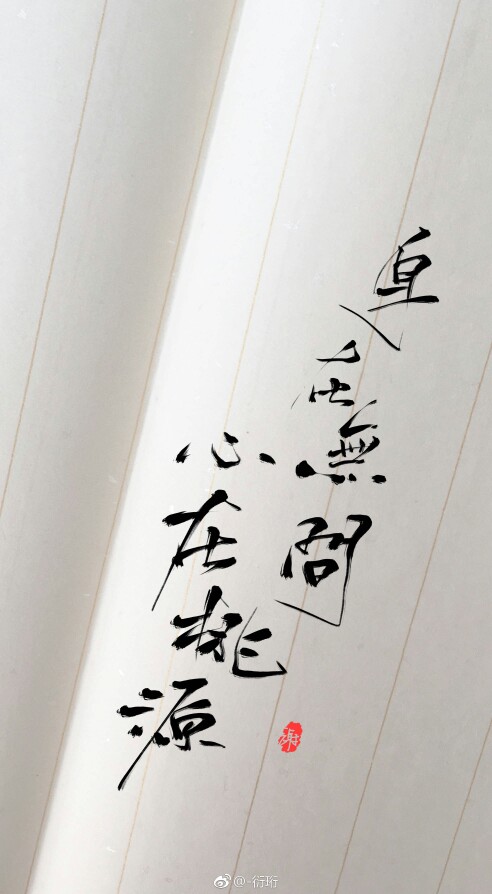 身在無間
心在桃源
@-衍珩